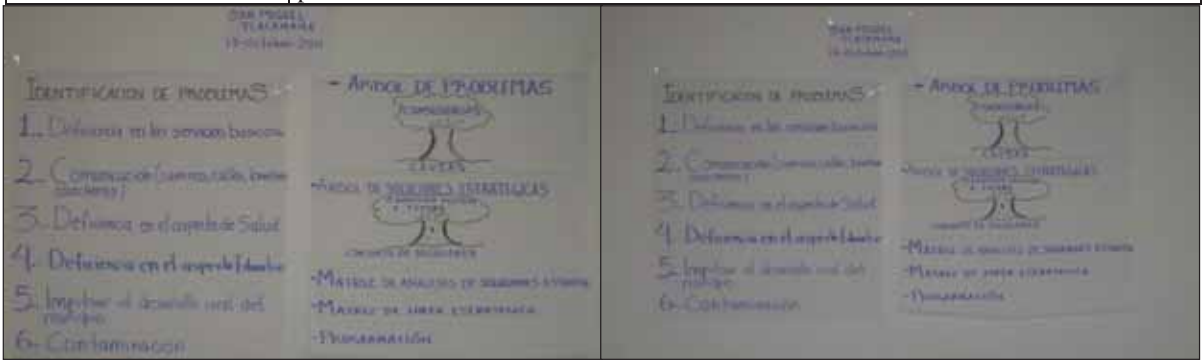 SAN MIGUEL
TLACAMAMA
IDENTIFICACION DE PROBLEMAS
1. Deficiencia en los servicios basicos
2. Comunicación (caminos, calles,
3. Deficiencia en el aspecto de Salud
4. Deficiencia en el aspecto Educativo
5. Impulsar el desarrollo rural del
municipio
6- Contaminacion
- ARBOL DE PROBLEMAS
CAUSAS
-ARBOL DE SOLUCIONES ESTRATEGICAS
CONJUNTO DE SOLUCIONES
-MATRIZ DE ANALISIS DE SOLUCIONES
-MATRIZ DE LINEA ESTRATEGICA
-PROGRAMACIÓN
SAN MIGUEL
TLACAMAMA
IDENTIFICACION DE PROBLEMAS
1. Deficiencia en los servicios basicos
2. Comunicación (caminos, calles,
3. Deficiencia en el aspecto de Salud
4. Deficiencia en el aspecto Educativo
5. Impulsar el desarrollo rural del
municipio
6- Contaminación
- ARBOL DE PROBLEMAS
CAUSAS
-ARBOL DE SOLUCIONES ESTRATEGICAS
CONJUNTO DE SOLUCIONES
-MATRIZ DE ANALISIS DE SOLUCIONES
-MATRIZ DE LINEA ESTRATEGICA
-PROGRAMACIÓN